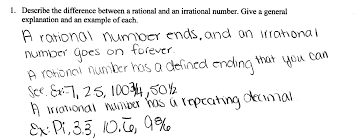 1. Describe the difference between a rational and an irrational number. Give a general
explanation and an example of each.
A rational number ends, and an irrational
number goes on forever.
A rational number has a defined ending that you can
see. Ex: 7, 25, 100 3/4, 50 1/2
A irrational number has a repeating decimal
Ex: Pi, 3.3̅, 10.6̅,